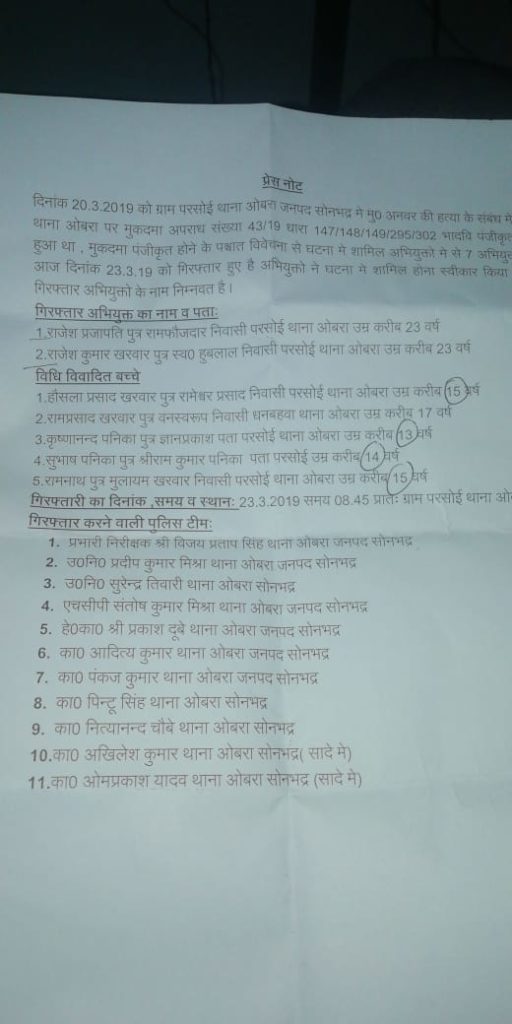 प्रेस नोट
दिनांक 20.3.2019 को ग्राम परसोई थाना ओबरा जनपद सोनभद्र मे मु0 अनवर की हत्या के संबंध मे
थाना ओबरा पर मुकदमा अपराध संख्या 43/19 धारा 147/148/149/295/302 भादवि पंजीकृत
हुआ था , मुकदमा पंजीकृत होने के पश्चात विवेचना से घटना मे शामिल अभियुक्तो मे से 7
आज दिनांक 23.3.19 को गिरफ्तार हुए है अभियुक्तो ने घटना मे शामिल होना स्वीकार किया
गिरफ्तार अभियुक्तो के नाम निम्नवत है ।
गिरफ्तार अभियुक्त का नाम व पताः
1.राजेश प्रजापति पुत्र रामफौजदार निवासी परसोई थाना ओबरा उम्र करीब 23 वर्ष
2.राजेश कुमार खरवार पुत्र स्व0 हुबलाल निवासी परसोई थाना ओबरा उम्र करीब 23 वर्ष
विधि विवादित बच्चे
1.हौसला प्रसाद खरवार पुत्र रामेश्वर प्रसाद निवासी परसोई थाना ओबरा उम्र करीब 15 वर्ष
2.रामप्रसाद खरवार पुत्र वनस्वरूप निवासी धनबहवा थाना ओबरा उम्र करीब 17 वर्ष
3.कृष्णानन्द पनिका पुत्र ज्ञानप्रकाश पता परसोई थाना ओबरा उम्र करीब 13 वर्ष
4.सुभाष पनिका पुत्र श्रीराम कुमार पनिका पता परसोई थाना ओबरा उम्र करीब 14 वर्ष
5.रामनाथ पुत्र मुलायम खरवार निवासी परसोई थाना ओबरा उम्र करीब 15 वर्ष
गिरफ्तारी का दिनांक ,समय व स्थानः 23.3.2019 समय 08.45 प्रातः ग्राम परसोई थाना
गिरफ्तार करने वाली पुलिस टीमः
1. प्रभारी निरीक्षक श्री विजय प्रताप सिंह थाना ओबरा जनपद सोनभद्र
2. उ0नि0 प्रदीप कुमार मिश्रा थाना ओबरा जनपद सोनभद्र
3. उ0नि0 सुरेन्द्र तिवारी थाना ओबरा सोनभद्र
4. एचसीपी संतोष कुमार मिश्रा थाना ओबरा जनपद सोनभद्र
5. हे0का0 श्री प्रकाश दूबे थाना ओबरा जनपद सोनभद्र
6. का0 आदित्य कुमार थाना ओबरा जनपद सोनभद्र
7. का0 पंकज कुमार थाना ओबरा जनपद सोनभद्र
8. का0 पिन्टू सिंह थाना ओबरा सोनभद्र
9. का0 नित्यानन्द चौबे थाना ओबरा सोनभद्र
10.का0 अखिलेश कुमार थाना ओबरा सोनभद्र( सादे मे)
11.का0 ओमप्रकाश यादव थाना ओबरा सोनभद्र (सादे मे)